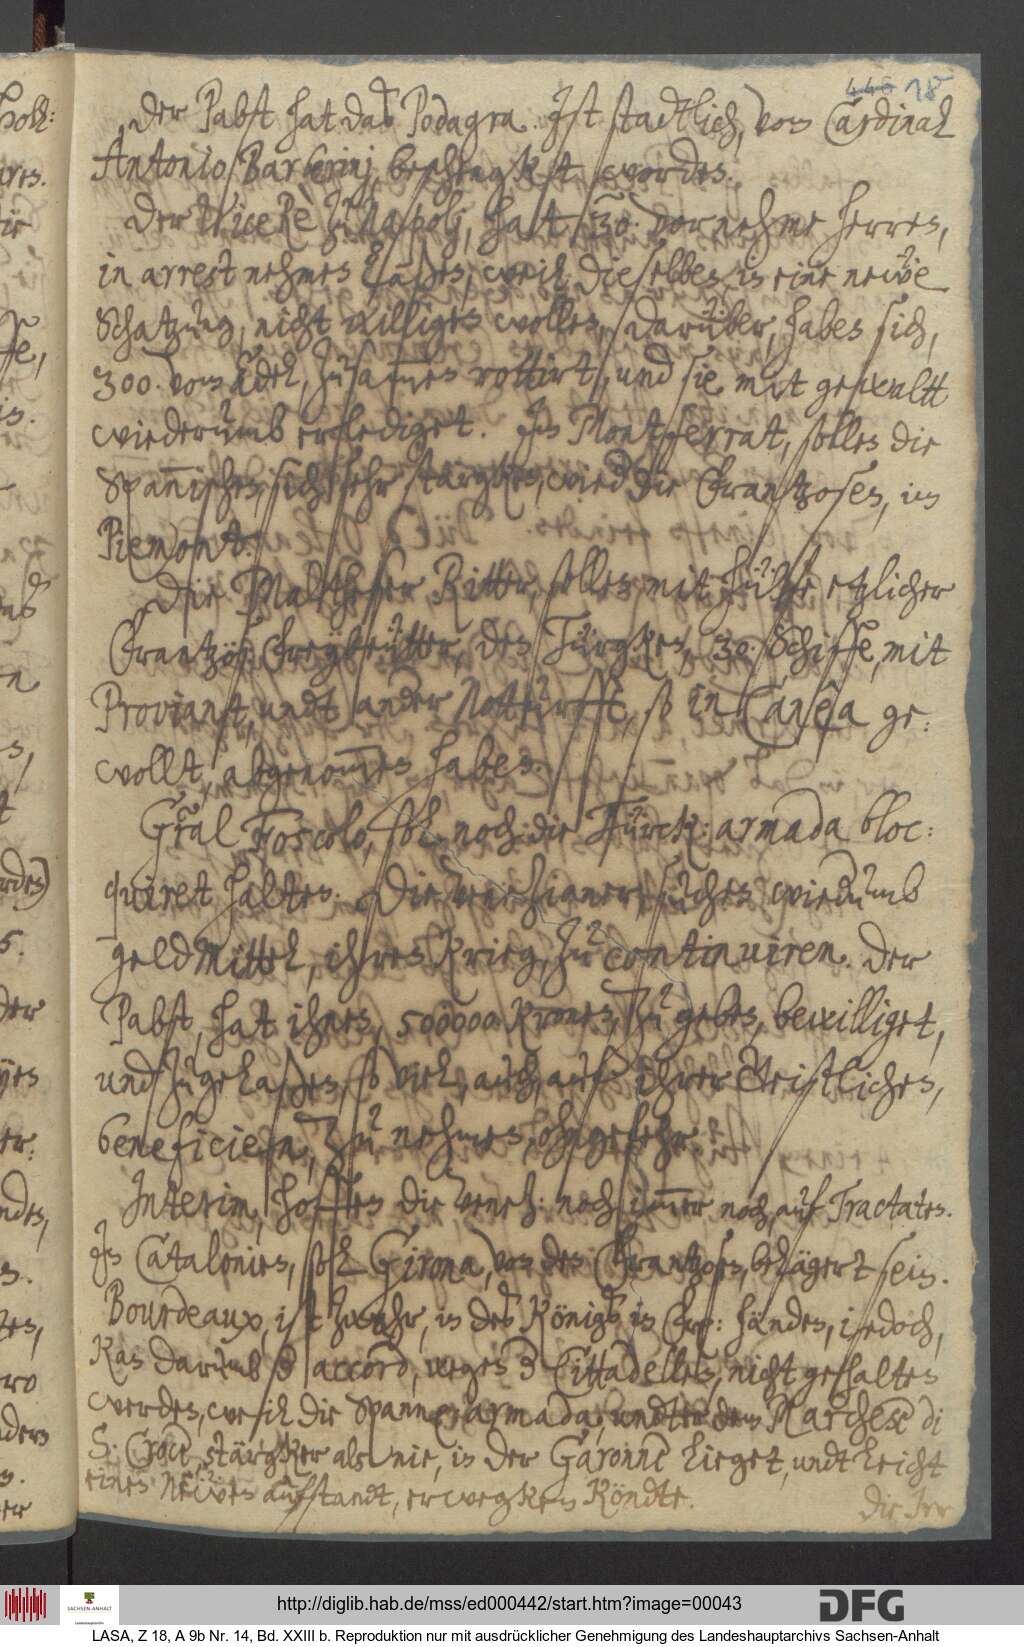 446 18
Der Pabst hat das Podagra. Ist stadtlich, vom Cardinal
Antonio Barberinj, bephenckt worden.
Der Vice Rè zu Napolj, hatt 30. vornehme herren,
in arrest nehmen laßen, weil dieselben in eine neẅe
Schatzung, nicht willigen wollen, darüber, haben sich,
300. vom Adel, zusammen rottirt, und sie mit gewaltt
wiederumb erlediget. In Montferrat, sollen die
Spannischen, sich sehr stärgken, wie die Frantzosen, im
Piemont.
Die Maltheser Ritter, sollen mit hülfe etzlicher
Frantzös. Freybeütter, den Türgken, 30 Schiffe, mit
Proviant, undt ander Notturfft, so in Canea ge:
wollt, abgenommen haben.
Gral Foscolo, soll noch die Türck: armada bloc:
quiret halten. Die Venezianer, suchen wiederumb
geldMittel, ihren Krieg, zu continuiren. Der
Pabst, hat ihnen, 500000 Kronen, zu geben, bewilliget,
und zugelaßen, so viel, auch, auf ihrer Geistlichen,
beneficien, zu nehmen, ohngefehr.
Interim, hofften die Venez: noch immer noch, auf Tractaten.
In Catalonien, soll Girona, von den Frantzosen, belägert sein.
Bourdeaux, ist zwahr, in des Königs in Frk: händen, iedoch,
Kan darumb der accord, wegen der Cittadellen, nicht gehalten
werden, weil die Spannische armada, undter dem Marchese di
S: Croce, stärgker als nie, in der Garonne lieget, undt leicht
einen Neẅen aufstandt, erwegken köndte.
Die Irr
http://diglib.hab.de/mss/ed000442/start.htm?image=00043
DFG
SACHSEN-ANHALT
LASA, Z 18, A 9b Nr. 14, Bd. XXIII b. Reproduktion nur mit ausdrücklicher Genehmigung des Landeshauptarchivs Sachsen-Anhalt